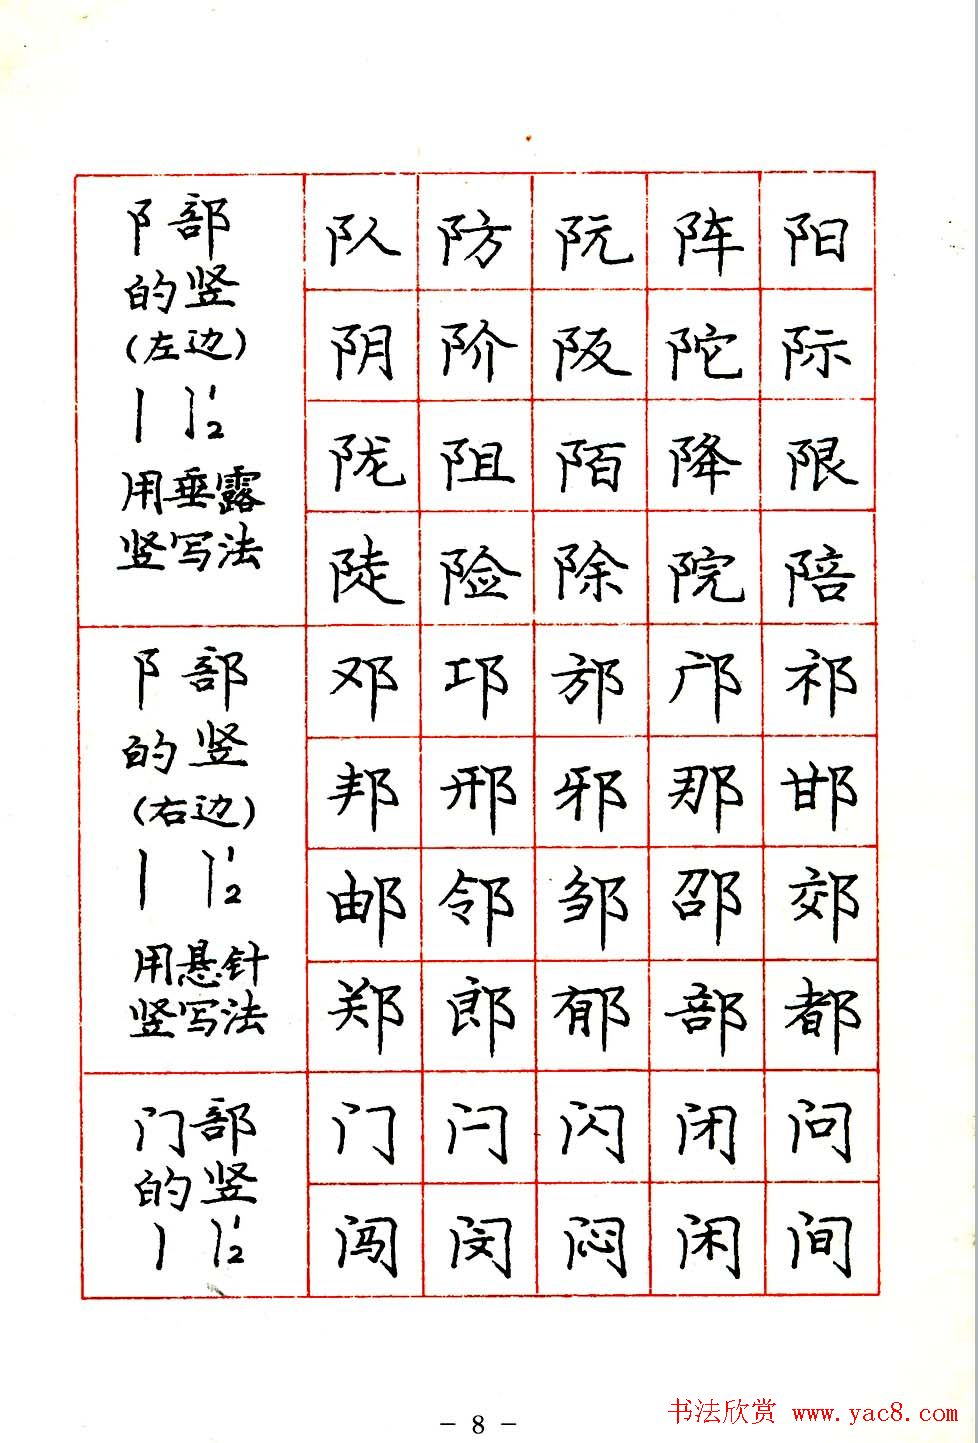 阝部
的竖
(左边)
丨 阝12
用垂露
竖写法
队 防 阮 阵 阳
阴 阶 阪 陀 际
陇 阻 陌 降 限
陡 险 除 院 陪
阝部
的竖
(右边)
丨 阝12
用悬针
竖写法
邓 邛 邡 邝 祁
邦 邢 邪 那 邯
邮 邻 邹 邵 郊
郑 郎 郁 部 都
门部
的竖
丨 12
门 闩 闪 闭 问
闯 闵 闷 闲 间
- 8 -
书法欣赏 www.yac8.com